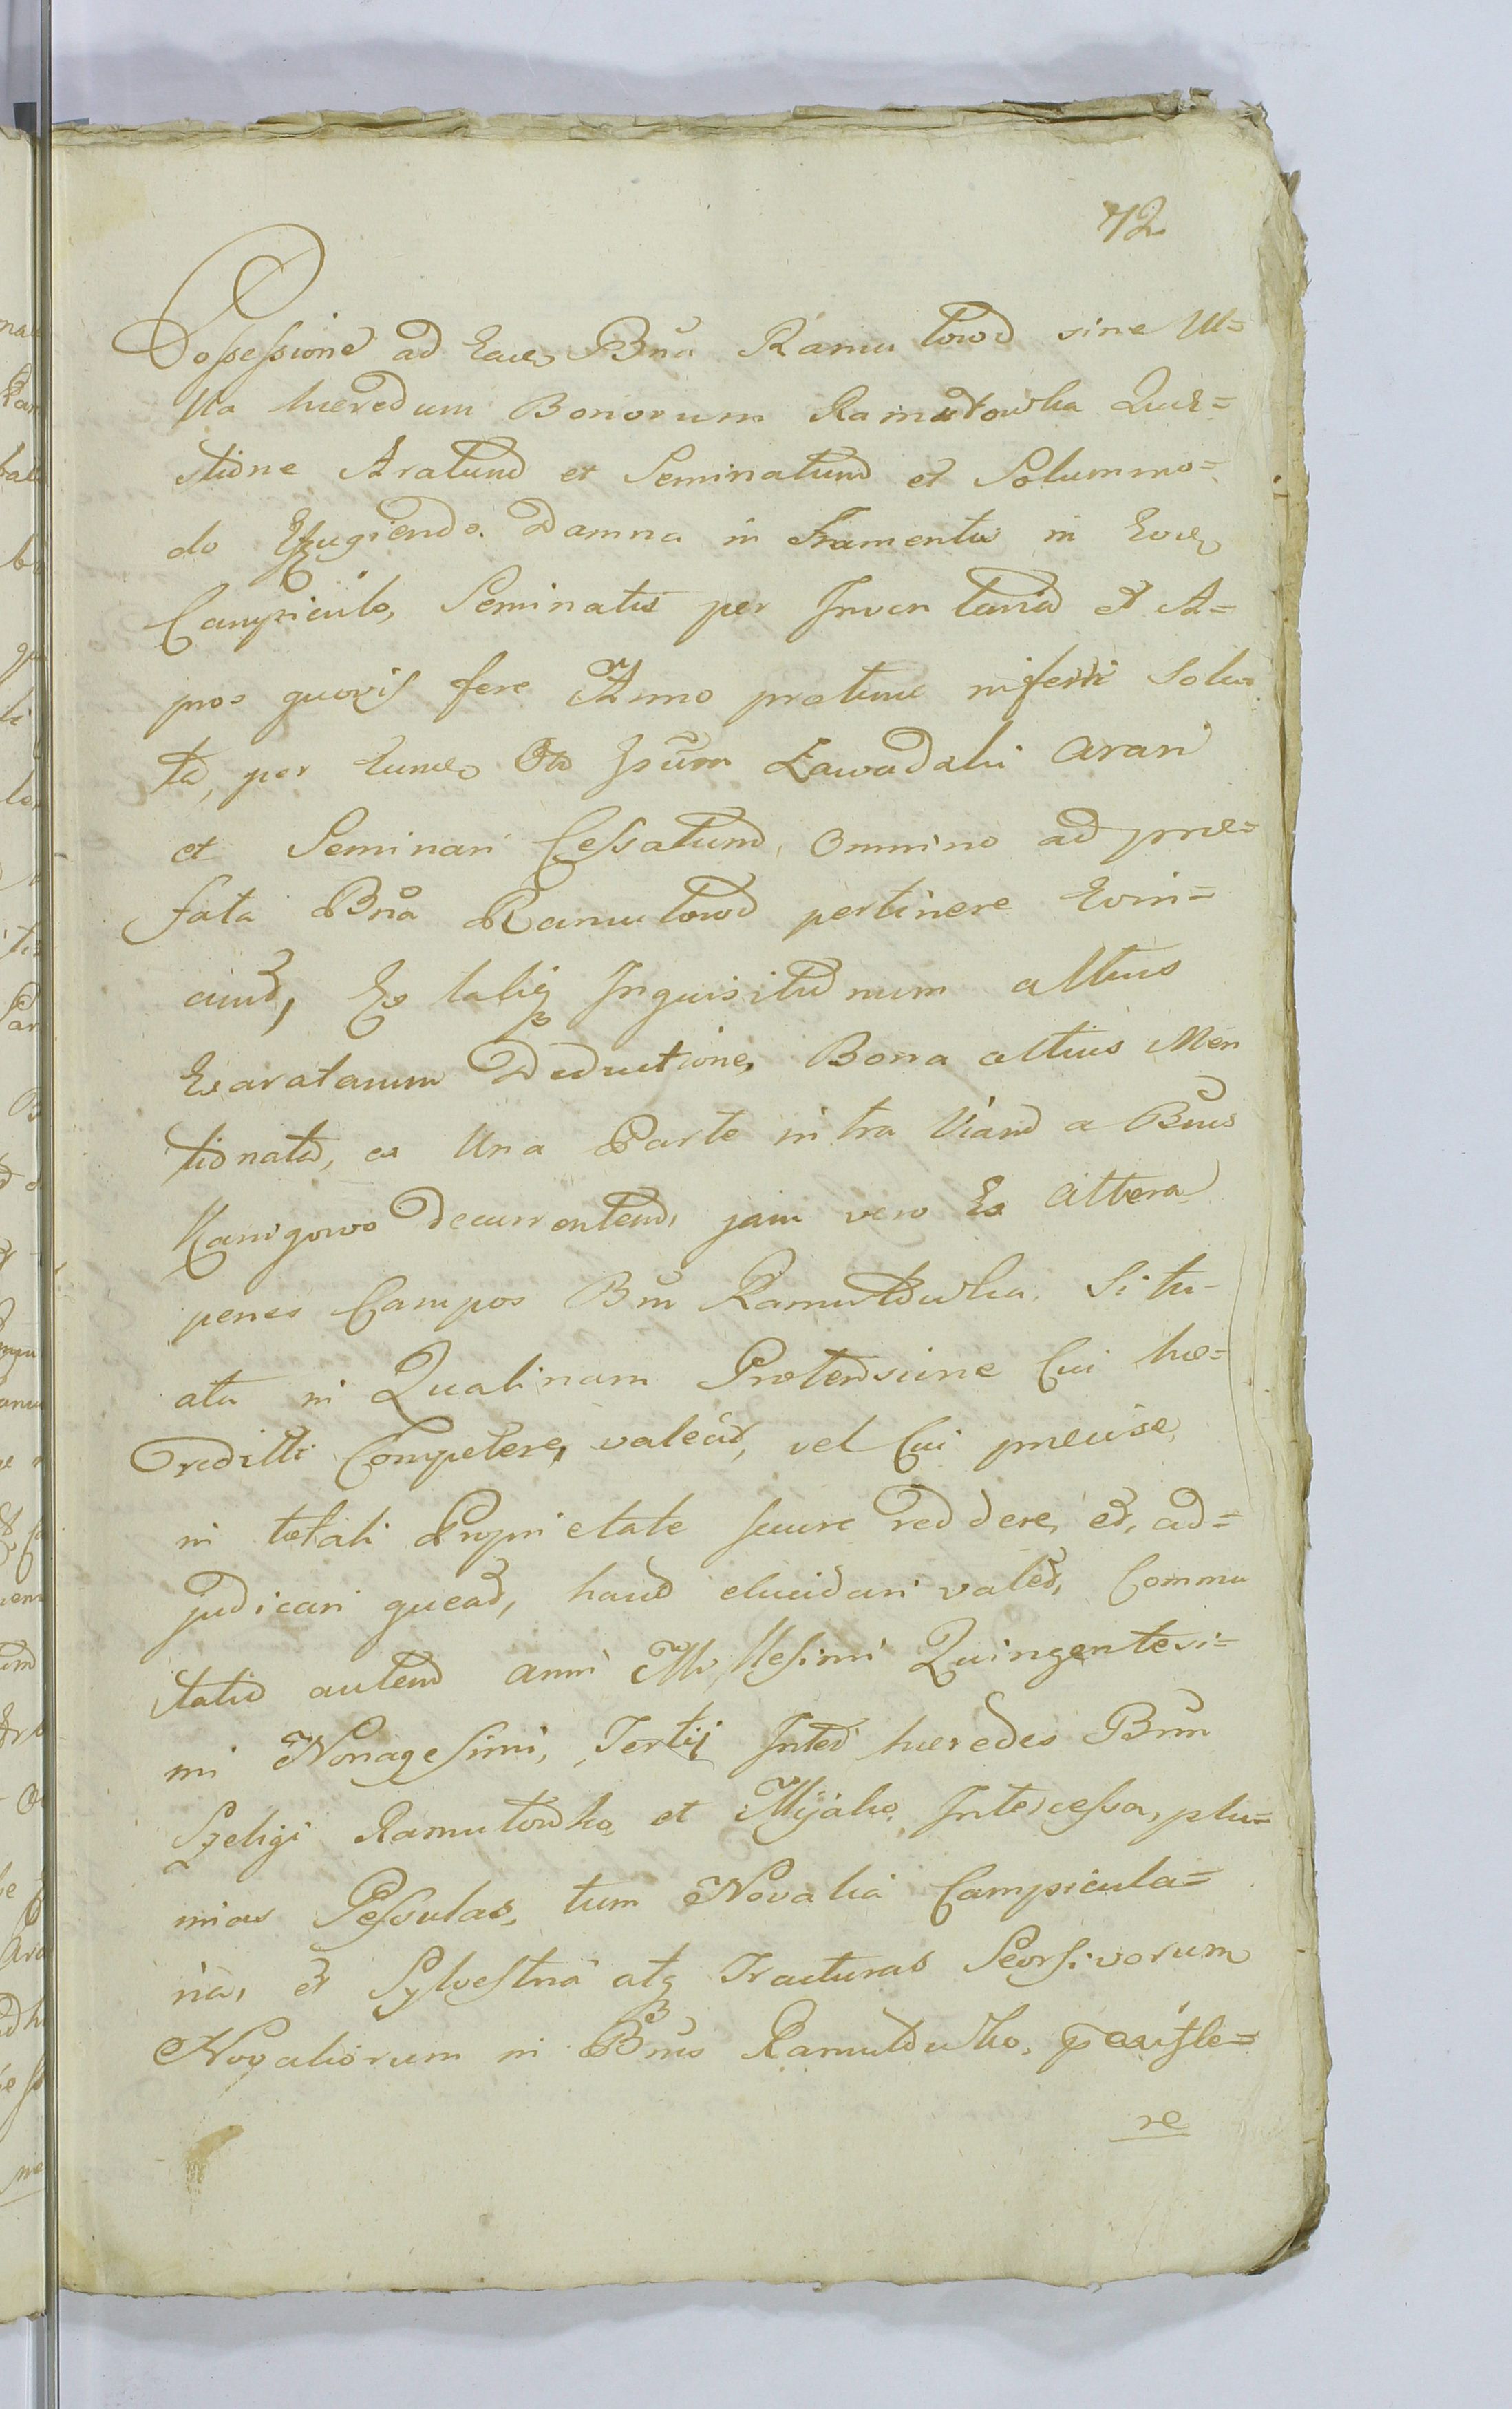 72.
Possessione ad Eade Bna Ramutowo sine Ul=
lla haeredum Bonorum Ramutowka Quæ=
stione Aratum et Seminatum et Solummo=
do Effugiendo Damna in Frumentis in
Campiculo, Seminatis per Inventaria et A=
pros quovis fere Anno pratune inferri Soli
ta, per Gnosum Zawadzki arari
et Seminari Cessatum, omnino ad præ=
fata Bna Ramutowo pertinere Evin=
cunt, Ex taliq Inquisitionum altius
Exaratarum Deductione, Bona altius Men
tionata, ex Una Parte intra Viam a Bnis
Kanigowo decurrentem, jam vero Ex altera
penes Campos Bm Ramutowka. Situ-
ata in Qualinam Protensione Cui hæ=
reditti Competere, valeat, vel Cui præcise,
in totali Proprietate jure reddere, et, ad=
judicari queat, haud elucidari valet, Commu
tatio autem anni Millesimi Quingentesi=
mi Nonagesimi, Tertij Inter hæredes Bnm
Szeligi Ramutowko, et Mijako, Intercessa, plu=
rimas Pessulas, tum Novalia Campicula=
ria, et Sylvestria atq Tracturas Seorsivorum
Novaliorum in Bnis Ramutowko, existe=
re